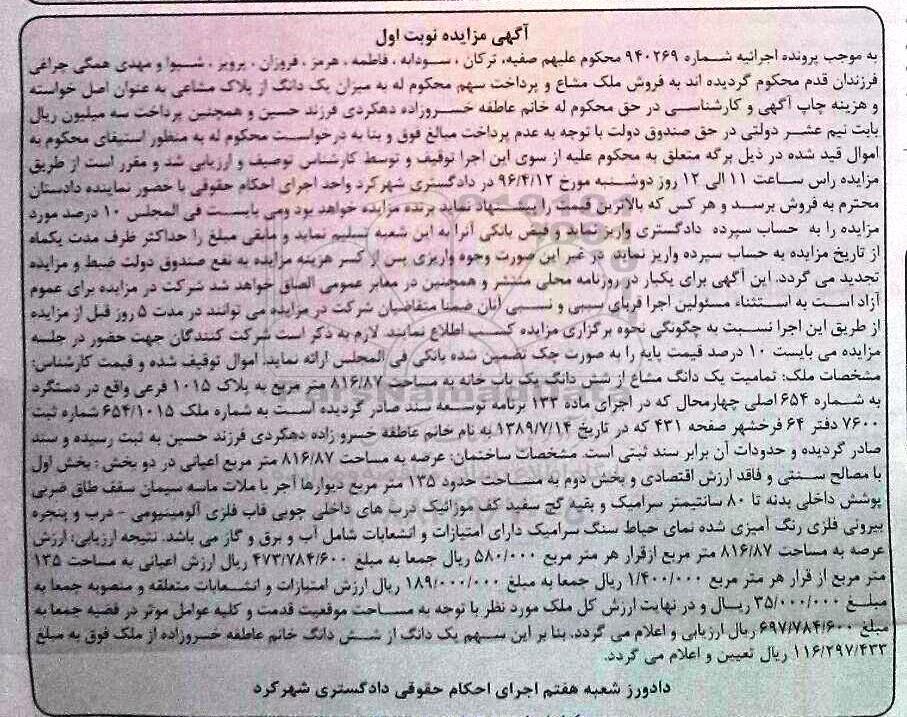 آگهی مزایده نوبت اول
به موجب پرونده اجرائیه شماره ۹۴۰۲۶۹ محکوم علیهم صفیه، ترکان ، سودابه ، فاطمه ، هرمز ، فروزان ، پرویز ، شیوا و مهدی همگی چراغی
فرزندان قدم محکوم گردیده اند به فروش ملک مشاع و پرداخت سهم محکوم له به میزان یک دانگ از پلاک مشاعی به عنوان اصل خواسته
و هزینه چاپ آگهی و کارشناسی در حق محکوم له خانم عاطفه خسروزاده دهکردی فرزند حسین و همچنین پرداخت سه میلیون ریال
بابت نیم عشر دولتی در حق صندوق دولت با توجه به عدم پرداخت مبالغ فوق و بنا به درخواست محکوم له به منظور استیفای محکوم به
اموال قید شده در ذیل برگه متعلق به محکوم علیه از سوی این اجرا توقیف و توسط کارشناس توصیف و ارزیابی شد و مقرر است از طریق
مزایده راس ساعت ۱۱ الی ۱۲ روز دوشنبه مورخ ۹۶/۴/۱۲ در دادگستری شهرکرد واحد اجرای احکام حقوقی با حضور نماینده دادستان
محترم به فروش برسد و هر کس که بالاترین قیمت را پیشنهاد نماید برنده مزایده خواهد بود ومی بایست فی المجلس ۱۰ درصد مورد
مزایده را به حساب سپرده دادگستری واریز نماید و فیش بانکی آنرا به این شعبه تسلیم نماید و مابقی مبلغ را حداکثر ظرف مدت یکماه
از تاریخ مزایده به حساب سپرده واریز نماید در غیر این صورت وجوه واریزی پس از کسر هزینه مزایده به نفع صندوق دولت ضبط و مزایده
تجدید می گردد. این آگهی برای یکبار در روزنامه محلی منتشر و همچنین در معابر عمومی الصاق خواهد شد شرکت در مزایده برای عموم
آزاد است به استثناء مسئولین اجرا قربای سببی و نسبی آنان ضمنا متقاضیان شرکت در مزایده می توانند در مدت ۵ روز قبل از مزایده
از طریق این اجرا نسبت به چگونگی نحوه برگزاری مزایده کسب اطلاع نمایند. لازم به ذکر است شرکت کنندگان جهت حضور در جلسه
مزایده می بایست ۱۰ درصد قیمت پایه را به صورت چک تضمین شده بانکی فی المجلس ارائه نماید. اموال توقیف شده و قیمت کارشناس:
مشخصات ملک: تمامیت یک دانگ مشاع از شش دانگ یک باب خانه به مساحت ۸۱۶/۸۷ متر مربع به پلاک ۱۰۱۵ فرعی واقع در دستگرد
به شماره ۶۵۴ اصلی چهارمحال که در اجرای ماده ۱۳۳ برنامه توسعه سند صادر گردیده است به شماره ملک ۶۵۴/۱۰۱۵ شماره ثبت
۷۶۰۰ دفتر ۶۴ فرخشهر صفحه ۴۳۱ که در تاریخ ۱۳۸۹/۷/۱۴ به نام خانم عاطفه خسرو زاده دهکردی فرزند حسین به ثبت رسیده و سند
صادر گردیده و حدودات آن برابر سند ثبتی است. مشخصات ساختمان: عرصه به مساحت ۸۱۶/۸۷ متر مربع اعیانی در دو بخش : بخش اول
با مصالح سنتی و فاقد ارزش اقتصادی و بخش دوم به مساحت حدود ۱۳۵ متر مربع دیوارها آجر با ملات ماسه سیمان سقف طاق ضربی
پوشش داخلی بدنه تا ۸۰ سانتیمتر سرامیک و بقیه گچ سفید کف موزائیک درب های داخلی چوبی قاب فلزی آلومینیومی - درب و پنجره
بیرونی فلزی رنگ آمیزی شده نمای حیاط سنگ سرامیک دارای امتیازات و انشعابات شامل آب و برق و گاز می باشد. نتیجه ارزیابی: ارزش
عرصه به مساحت ۸۱۶/۸۷ متر مربع ازقرار هر متر مربع ۵۸۰/۰۰۰ ریال جمعا به مبلغ ۴۷۳/۷۸۴/۶۰۰ ریال ارزش اعیانی به مساحت ۱۳۵
متر مربع از قرار هر متر مربع ۱/۴۰۰/۰۰۰ ریال جمعا به مبلغ ۱۸۹/۰۰۰/۰۰۰ ریال ارزش امتیازات و انشعابات متعلقه و منصوبه جمعا به
مبلغ ۳۵/۰۰۰/۰۰۰ ریال و در نهایت ارزش کل ملک مورد نظر با توجه به مساحت موقعیت قدمت و کلیه عوامل موثر در قضیه جمعا به
مبلغ ۶۹۷/۷۸۴/۶۰۰ ریال ارزیابی و اعلام می گردد. بنا بر این سهم یک دانگ از شش دانگ خانم عاطفه خسروزاده از ملک فوق به مبلغ
۱۱۶/۲۹۷/۴۳۳ ریال تعیین و اعلام می گردد.
دادورز شعبه هفتم اجرای احکام حقوقی دادگستری شهرکرد